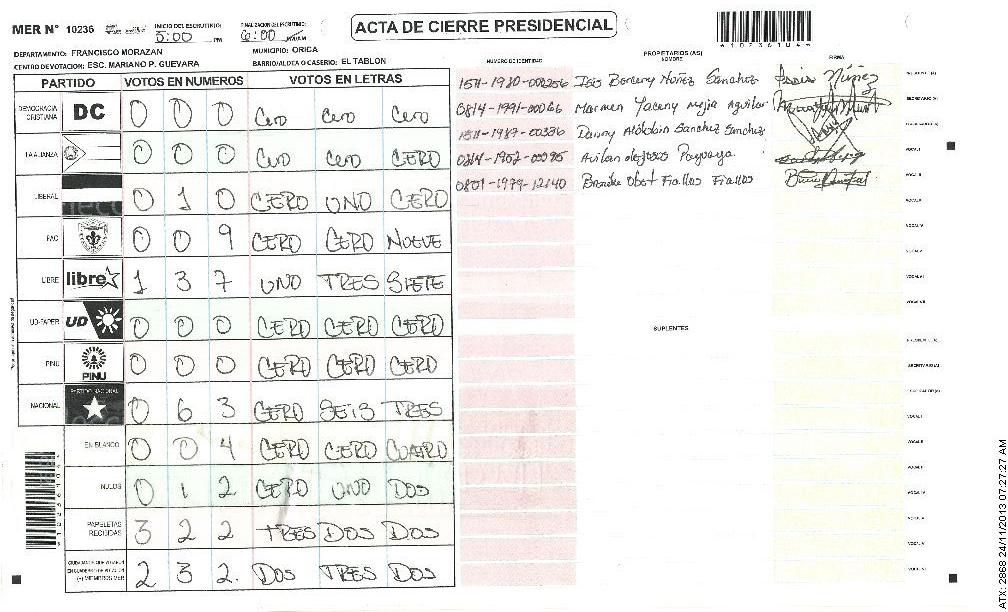 MER N° 10236 INICIO DEL ESCRUTINIO: 5:00 PM FINALIZACION ESCRUTINIO: 6:00
ACTA DE CIERRE PRESIDENCIAL
DEPARTAMENTO: FRANCISCO MORAZAN MUNICIPIO: ORICA
CENTRO DE VOTACION: ESC. MARIANO P. GUEVARA BARRIO/ALDEA O CASERIO: EL TABLON
PARTIDO VOTOS EN NUMEROS VOTOS EN LETRAS
DEMOCRACIA CRISTIANA DC 0 0 0 Cero Cero Cero
LA ALIANZA 0 0 0 Cero Cero CERO
LIBERAL 0 1 0 CERO UNO CERO
PAC 0 0 9 CERO CERO NUEVE
LIBRE libre 1 3 7 UNO TRES SIETE
UD-FAPER UD 0 0 0 CERO CERO CERO
PINU PINU 0 0 0 CERO CERO CERO
NACIONAL PARTIDO NACIONAL 0 6 3 CERO SEIS TRES
EN BLANCO 0 0 4 CERO CERO CUATRO
NULOS 0 1 2 CERO UNO DOS
PAPELETAS RECIBIDAS 3 2 2 TRES DOS DOS
2 3 2 DOS TRES DOS
PROPIETARIOS (AS)
NUMERO DE IDENTIDAD NOMBRE FIRMA
Nuñez Sanchez Núñez PRESIDENTE (A)
0814-1991-00066 Yaceny Mejia Aguilar SECRETARIO (A)
Danny Sanchez Sanchez
VOCAL I
0801-1979-12140 Fiallos Fiallos VOCAL II
VOCAL III
VOCAL IV
VOCAL V
VOCAL VI
VOCAL VII
SUPLENTES
PRESIDENTE (A)
SECRETARIO (A)
ESCRUTADOR (A)
VOCAL I
VOCAL II
VOCAL III
VOCAL IV
VOCAL V
VOCAL VI
VOCAL VII
ATX: 2868 24/11/2013 07:27:27 AM